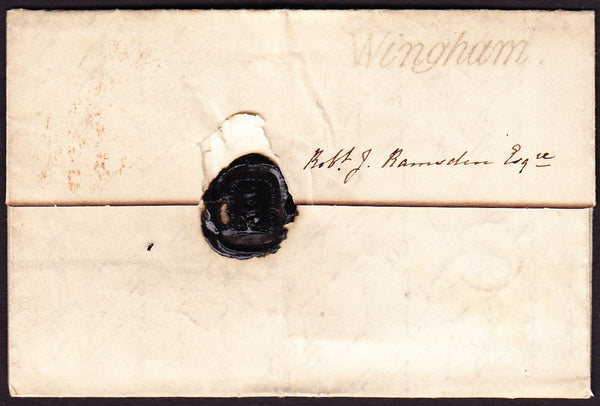 Wingham.
Robt. J. Ramsden Esqre